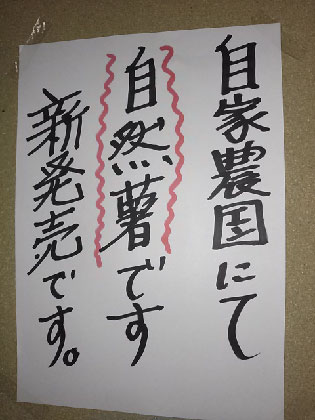 自家農園にて
自然薯です
新発売です。